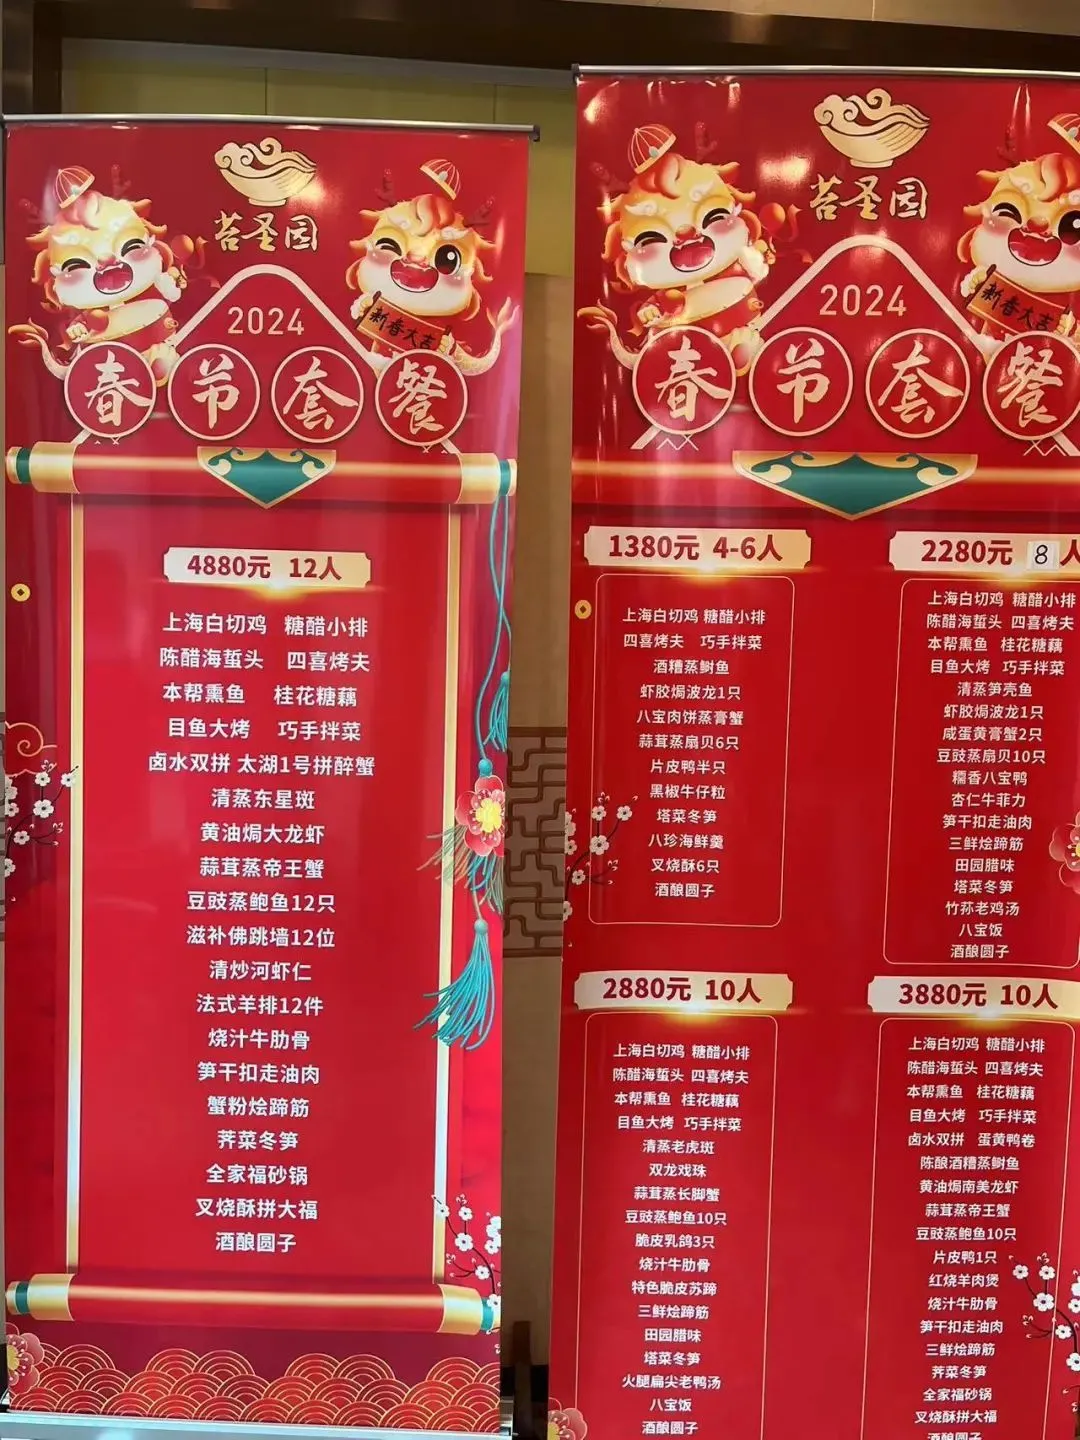 苔圣园
新春大吉
2024
春节套餐
4880元 12人
上海白切鸡 糖醋小排
陈醋海蜇头 四喜烤夫
本帮熏鱼 桂花糖藕
目鱼大烤 巧手拌菜
卤水双拼 太湖1号拼醉蟹
清蒸东星斑
黄油焗大龙虾
蒜茸蒸帝王蟹
豆豉蒸鲍鱼12只
滋补佛跳墙12位
清炒河虾仁
法式羊排12件
烧汁牛肋骨
笋干扣走油肉
蟹粉烩蹄筋
荠菜冬笋
全家福砂锅
叉烧酥拼大福
酒酿圆子
苔圣园
新春大吉
2024
春节套餐
1380元 4-6人
上海白切鸡 糖醋小排
四喜烤夫 巧手拌菜
酒糟蒸鲥鱼
虾胶焗波龙1只
八宝肉饼蒸膏蟹
蒜茸蒸扇贝6只
片皮鸭半只
黑椒牛仔粒
塔菜冬笋
八珍海鲜羹
叉烧酥6只
酒酿圆子
2280元 8人
上海白切鸡 糖醋小排
陈醋海蜇头 四喜烤夫
本帮熏鱼 桂花糖藕
目鱼大烤 巧手拌菜
清蒸笋壳鱼
虾胶焗波龙1只
咸蛋黄膏蟹2只
豆豉蒸扇贝10只
糯香八宝鸭
杏仁牛菲力
笋干扣走油肉
三鲜烩蹄筋
田园腊味
塔菜冬笋
竹荪老鸡汤
八宝饭
酒酿圆子
2880元 10人
上海白切鸡 糖醋小排
陈醋海蜇头 四喜烤夫
本帮熏鱼 桂花糖藕
目鱼大烤 巧手拌菜
清蒸老虎斑
双龙戏珠
蒜茸蒸长脚蟹
豆豉蒸鲍鱼10只
脆皮乳鸽3只
烧汁牛肋骨
特色脆皮苏蹄
三鲜烩蹄筋
田园腊味
塔菜冬笋
火腿扁尖老鸭汤
八宝饭
酒酿圆子
3880元 10人
上海白切鸡 糖醋小排
陈醋海蜇头 四喜烤夫
本帮熏鱼 桂花糖藕
目鱼大烤 巧手拌菜
卤水双拼 蛋黄鸭卷
陈酿酒糟蒸鲥鱼
黄油焗南美龙虾
蒜茸蒸帝王蟹
豆豉蒸鲍鱼10只
片皮鸭1只
红烧羊肉煲
烧汁牛肋骨
笋干扣走油肉
三鲜烩蹄筋
荠菜冬笋
全家福砂锅
叉烧酥拼大福
酒酿圆子